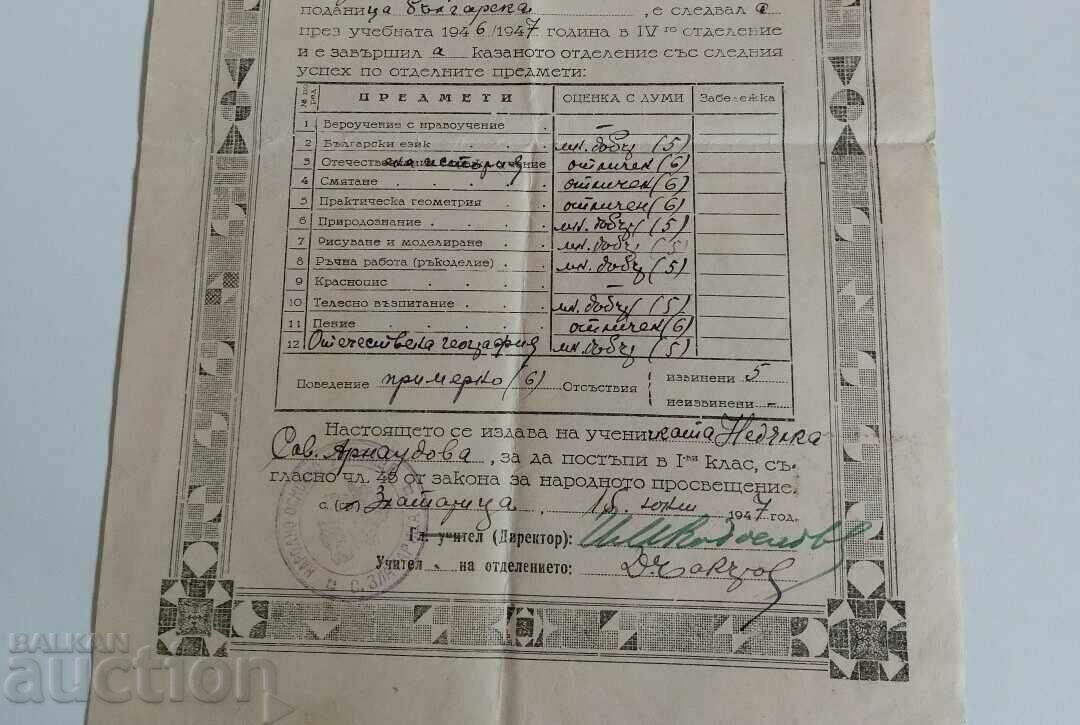 поданица българска, е следвал а
през учебната 1946/1947 година в IV то отделение
и е завършил а казаното отделение със следния
успех по отделните предмети:
№ по ред. ПРЕДМЕТИ ОЦЕНКА С ДУМИ Забележка
1 Вероучение с нравоучение . –
2 Български език . . . мн. добър (5)
3 Отечествена история отличен (6)
4 Смятане . . . . отличен (6)
5 Практическа геометрия . отличен (6)
6 Природознание . . . мн. добър (5)
7 Рисуване и моделиране . . мн. добър (5)
8 Ръчна работа (ръкоделие) . . мн. добър (5)
9 Краснопис . . . .
10 Телесно възпитание . . . мн. добър (5)
11 Пение . . . . отличен (6)
12 Отечествена география мн. добър (5)
Поведение примерно (6) Отсъствия извинени 5
неизвинени –
Настоящето се издава на ученичката Недялка
Сав. Арнаудова, за да постъпи в I ви клас, съ-
гласно чл. 48 от закона за народното просвещение.
с. (гр) Златарица, 16 юни 1947 год.
Гл. учител (Директор):
Учител на отделението:
С. ЗЛАТАРИЦА
BALKAN
auction